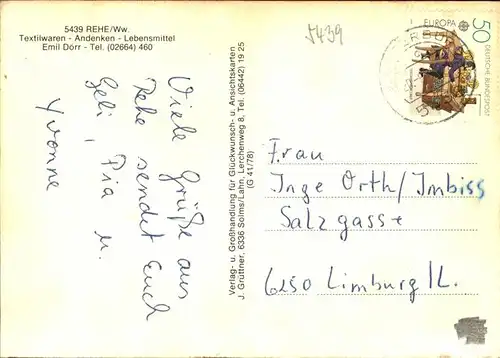 5439 REHE/Ww.
Textilwaren - Andenken - Lebensmittel
Emil Dörr - Tel. (02664) 460
Viele Grüße aus
Rehe sendet Euch
Geli, Pia u.
Yvonne
Verlag- u. Großhandlung für Glückwunsch- u. Ansichtskarten
J. Grüttner, 6336 Solms/Lahn, Lerchenweg 8, Tel. (06442) 19 25
(G 41/78)
5439
EUROPA
50
DEUTSCHE BUNDESPOST
Frau
Inge Orth/Imbiss
Salzgasse
6250 Limburg/L.